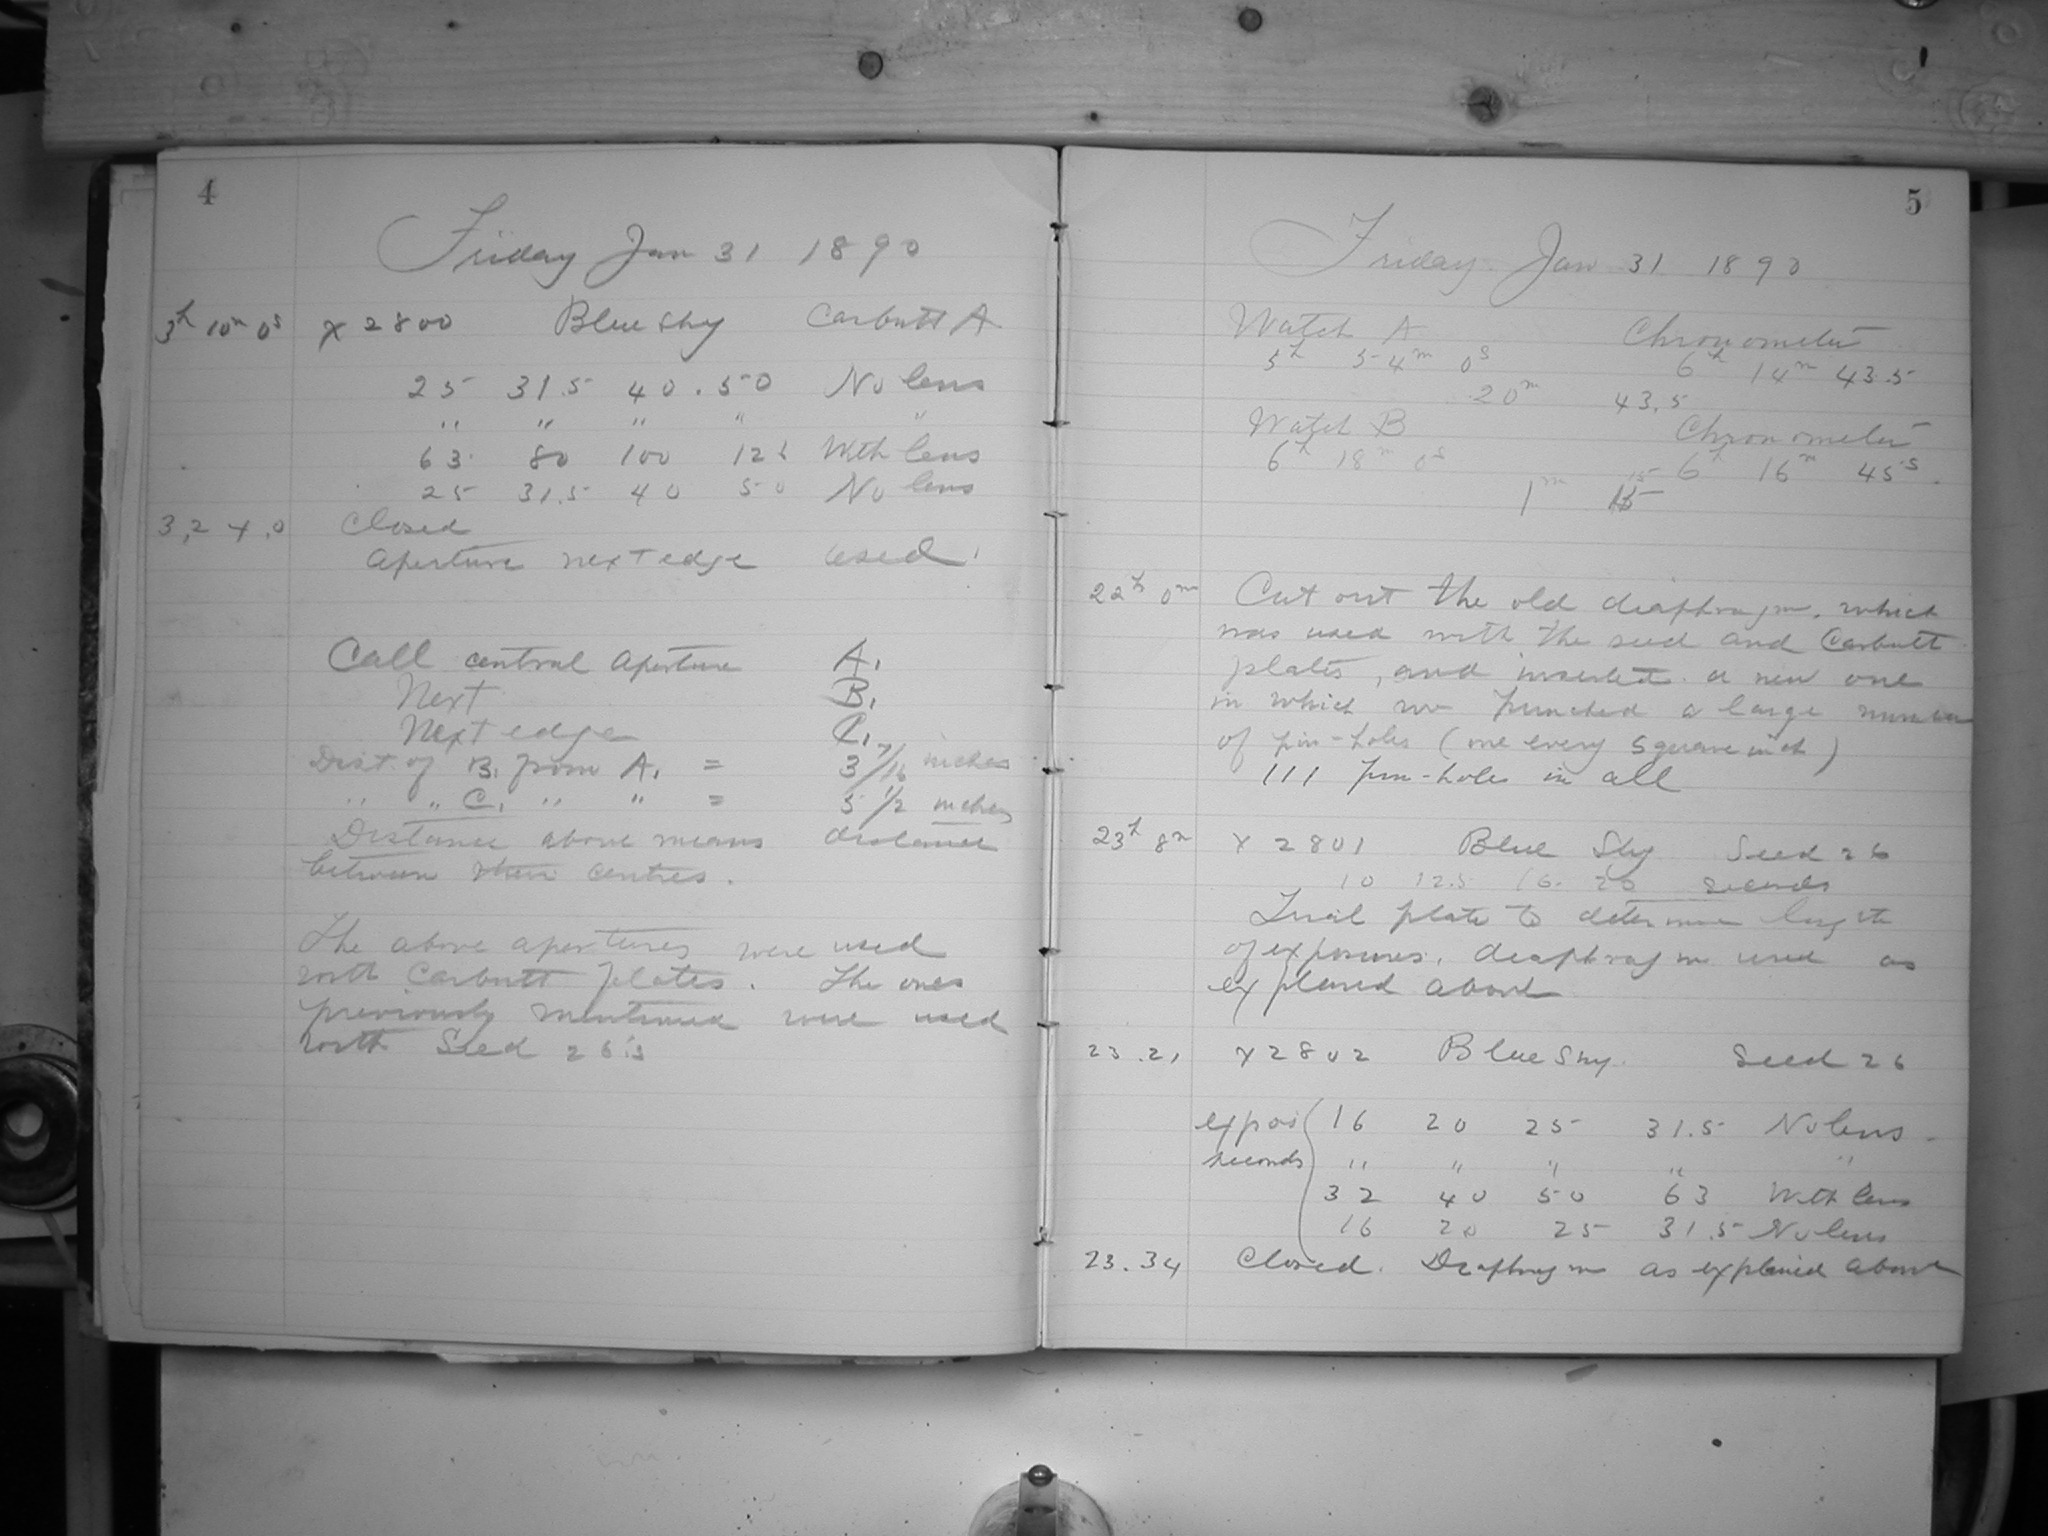 4
Friday Jan 31 1890
3h 10m 0s x 2800 Blue Sky Carbutt A
25 31.5 40. 50 No lens
" " " " "
63. 80 100 125 With lens
25 31.5 40 50 No lens
3.24.0 Closed
Aperture next edge used.
Call central aperture A.
Next B.
Next edge C.
Dist. of B. from A. = 3 7/16 inches
" " C. " " = 5 1/2 inches
Distance above means distance
between their centres.
The above apertures were used
with Carbutt plates. The ones
previously mentioned were used
with Seed 26's
5
Friday Jan 31 1890
Watch A Chronometer
5h 54m 0s 6h 14m 43.5
20m 43.5
Watch B Chronometer
6h 18m 0s 6h 16m 45s.
1m 15
22h 0m Cut out the old diaphragm, which
was used with the seed and Carbutt
plates, and inserted a new one
in which we punched a large number
of pin-holes (one every square inch)
111 pin-holes in all
23h 8m x 2801 Blue Sky Seed 26
10 12.5 16. 20 seconds
Trial plate to determine length
of exposures. diaphragm used as
explained above
23.21 x 2802 Blue Sky. Seed 26
expos 16 20 25 31.5 No lens
seconds " " " " "
32 40 50 63 With lens
16 20 25 31.5 No lens
23.34 Closed. Diaphragm as explained above